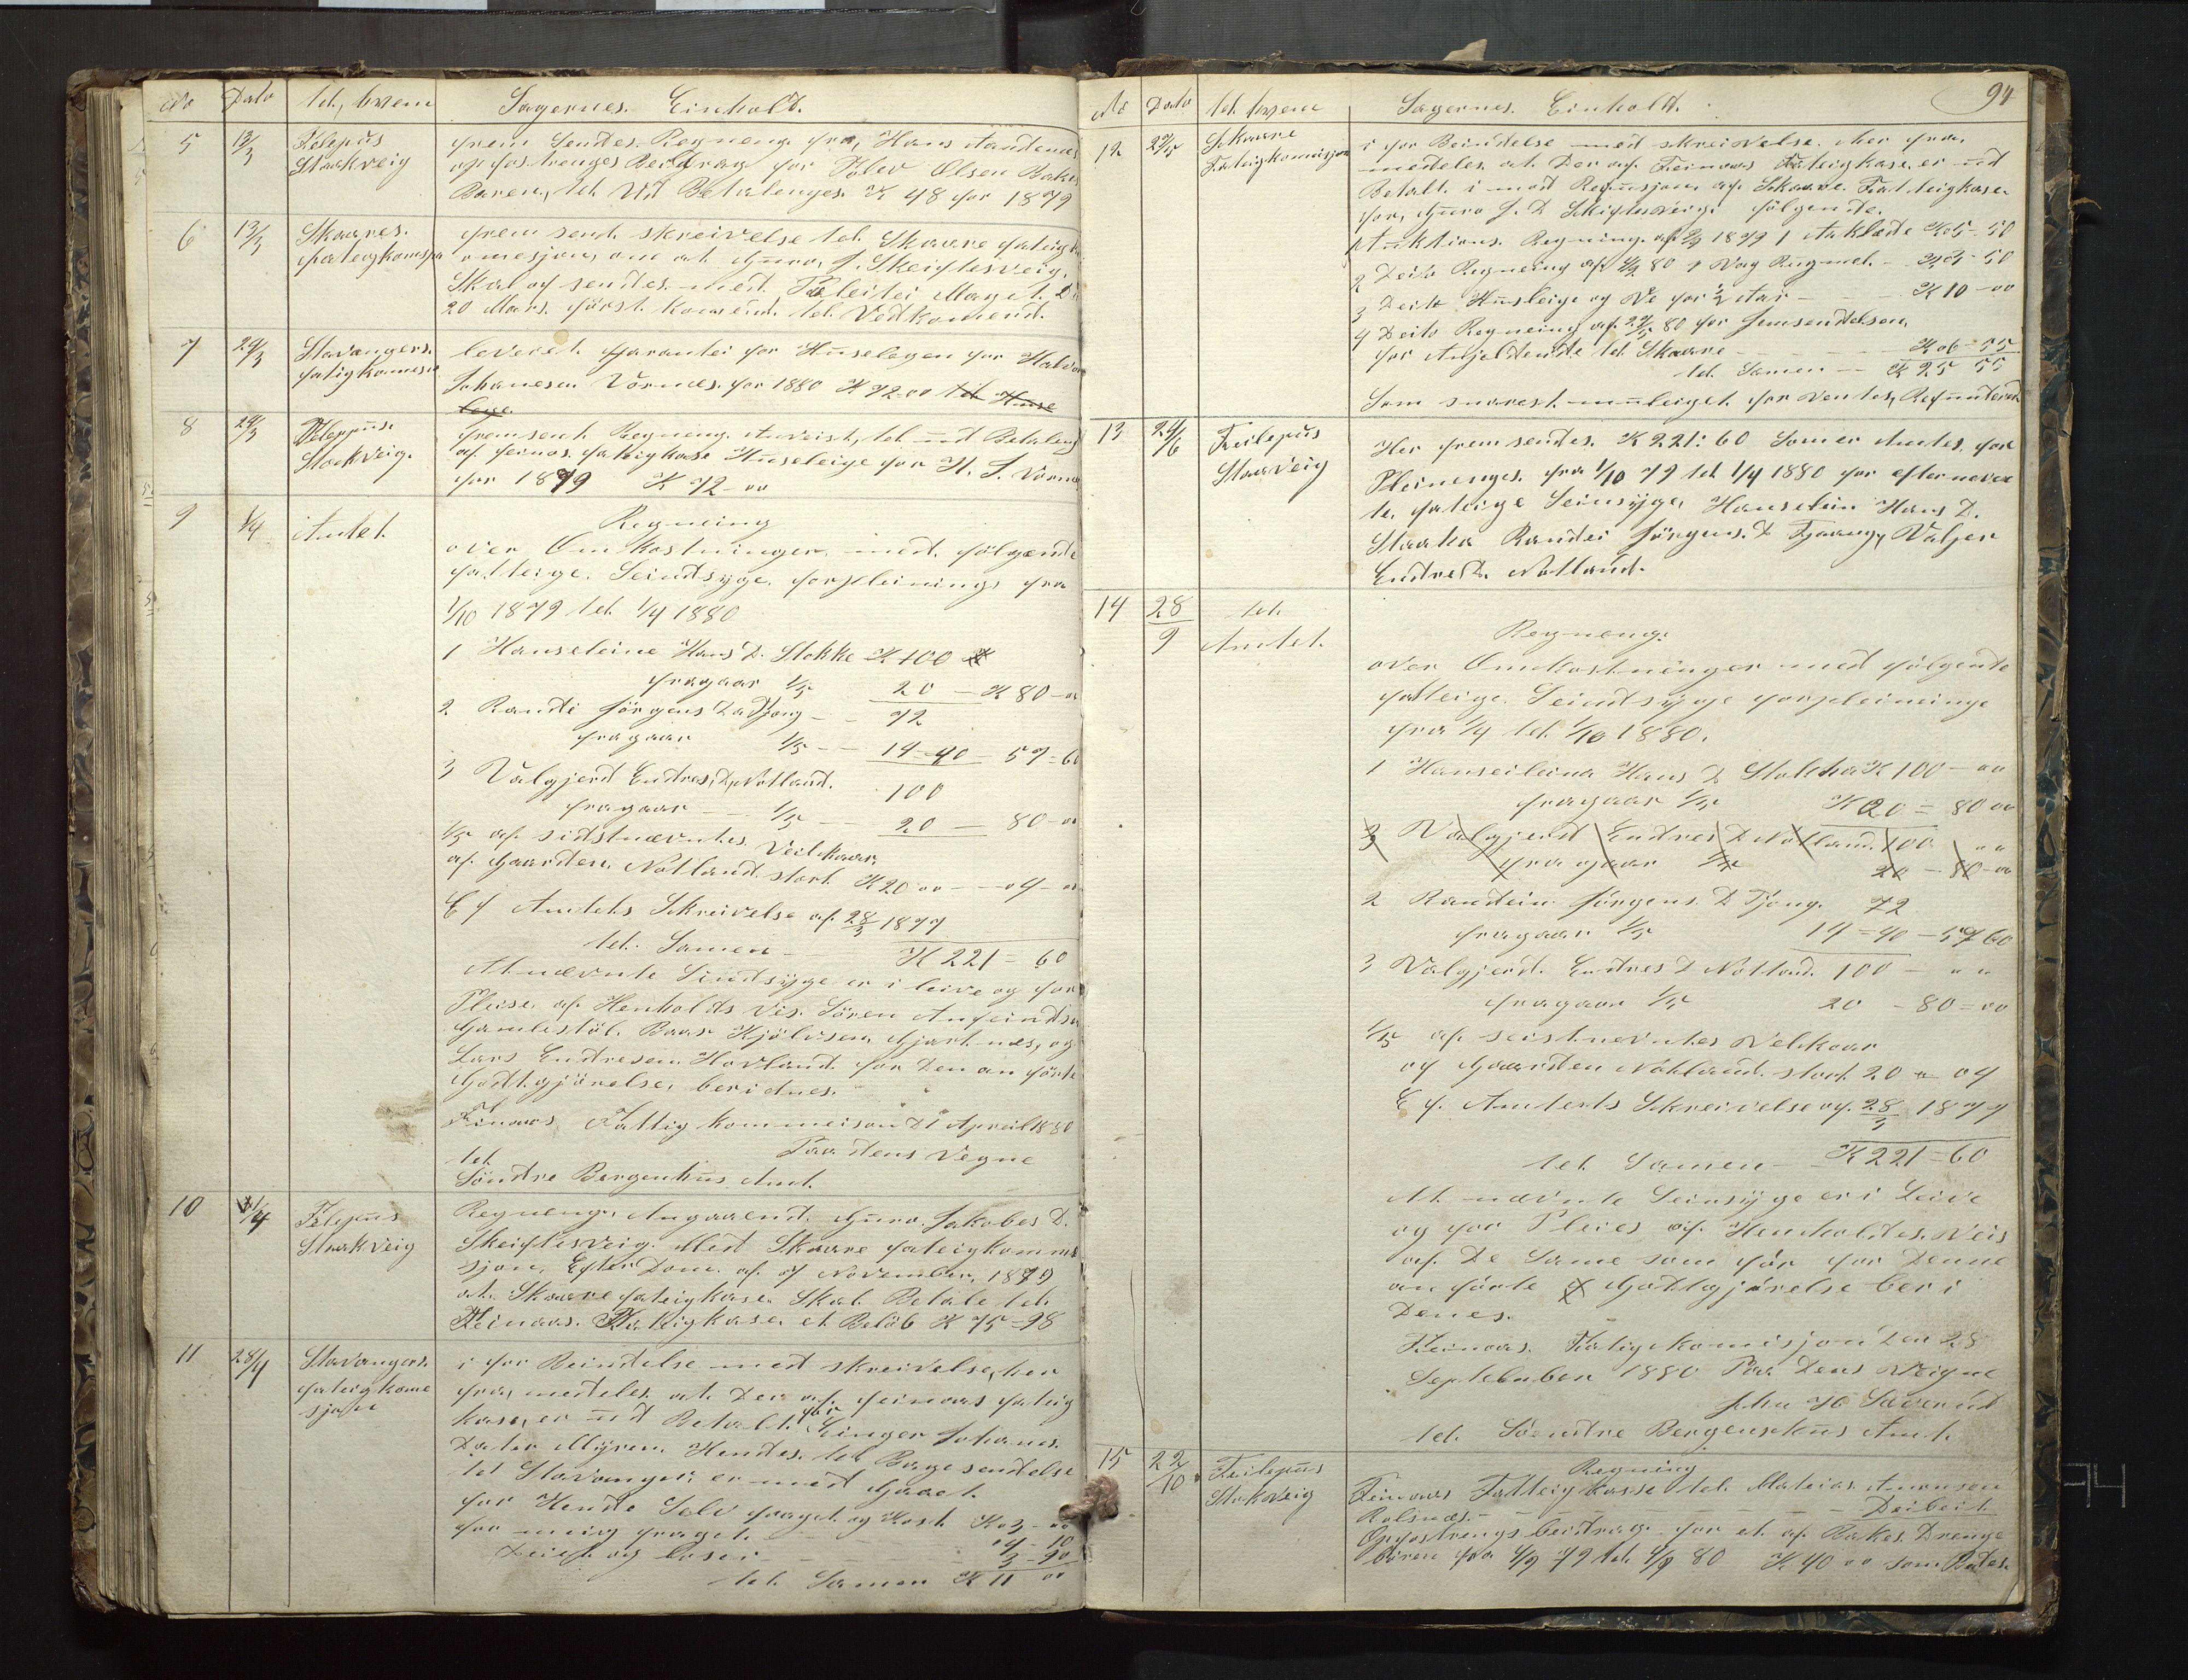 No Dato tel, hvem Sagernes. Einholt.
5 13/3 Felepus Stakveig
frem Sendes. Regneng fra, Hans
opfostrenges Beidrag for Olsen Bakes
Baren, tel Ud Betalenges. K 48 for 1879
6 13/3 Skaares. fateigkomsjon
frem send. skreivelse tel. Skaare fateigk
omesjon, om at Guro, J. Skeiftesveig.
Skal of sendes. med. Maget. D
20 Mars. först. komend. tel. Vedkomend.
7 24/3 Stavangers. fatigkomesion
leveret. Garantei for Huselegen for Halvor
Johanesen Vornes. for 1880 K 72-00 tel Huse
leye.
8 24/3 Felepus. Stockveig.
fremsent. Regneng. Anveist, tel ud Betaleng
af feinos. fateigkase Huseleige for H. J. Vornes
for 1879 K 72-00
9 1/4 Amtet.
Regneing
over Omkostninger. med. følgende
fatteige. Seindsyge. forpleinings fra
1/10 1879 tel 1/4 1880
1 Hanseleine Hans D. Stokke K 100
fragaar 1/5 20 — K 80-00
2 Randi Jörgens D. Tjong - - 72
fragaar 1/5 -- 14-40 = 57=60
3 Valgjerd Endres, D, Notland. 100
fragaar - - 1/5 - - 20 = 80-00
1/5 af. sidstnævntes. Veilkaar,
af. Gaarden, Notland. stort K 20 00 --- 04-00
Ef Amtets Skreivelse af. 28/3 1877
tel. Samen - K 221 = 60
At nævnte Sindsyge er i leive og for
Pleise. af. Henholds Vis. Sören
Gamlestöl. Baar Kjölvsen, Gjertnes, og
Lars Endresen. Hovland. for Den an förte
Godtgjörelse, beridnes.
Finaas Fattig kommeison D 1 April 1880
Paa dens Vegne
tel.
Söndre Bergenhus Amt.
10 1/4 Felepus Stakveig
Regneng. Angaaend. Guro. Jakobes D.
Skeiftesveig. Med Skaare fateigkomme
sjon, Efter Dom. af. 07 November, 1879
at. Skaare fateigkase. Skal. Betale tel.
Feinaas. Fateigkase, et Belöb K 75-98
11 28/4 Stavangers. fateigkome sjon
i for Beindelse med skreivelse, her
fra, medeles. at. Der af. feinaas fateig
kase, er ud Betalt. for Singer Johanes.
Dater Myren. Hendes. tel Bage sendelse
tel Stavanger, er med Gaaet.
for Hende Selv fraget og Kost K 03-00
for meig fraget. 04-10
Deiet og loseí 3-90
tel. Samen K 11 00
94
No Dato tel. hvem Sagernes. Einholt.
12 29/5 Skaare Fateigkomisjon
i for Beindelse med skreivelse. her fra.
medeles. at. Der af. Feinaas Fateigkase. er ud
Betalt. i mod Refusjon af. Skaare. Fatteigkase
for, Guro J. D Skiftesveig. følgende.
1 Auktions. Regning. af. 1879 1 Aaklæde K 05-50
2 Deito Regneing af. 80 1 Vog Rugmel. - K 03-50
3 Deito Husleige og Ve for 1/2 Aar - - K 10-00
4 Deito Regneing af. 80 for Jemsendelsen,
for Anjeldende tel. Skaare - - - K 06-55
tel. Samen -- K 25 55
Som snarest. muleiget. for ventes, Refunderet
13 24/6 Feilepus Staaveig
Her frem sendes. K 221:60 Som er Amtes. for
Pleinenges. fra 1/10 79 tel 1/4 1880 for efternevn
te. fateige Seinsyge, Hanselein Hans D.
Staaka Randei Jörgens. D Tjaang, Valjer
Endres D. Notland.
14 28/9 tel. Amtet.
Regneng.
over Omkostninger med følgende
fatteige. Seindsyge forpleininge
fra 1/4 tel. 1/10 1880.
1 Hanseileina Hans D Stokka K 100-00
fragaar 1/5 K 20 = 80 00
3 Valgjerd Endres D Notland. 100 00
fragaar 1/5 20 - 80-00
2 Randein Jörgens. D Tjöng. 72
fragaar 1/5 14=40 - 57 60
3 Valgjerd. Endres D Notland. 100 - 00
fragaar 1/5 20 - 80=00
1/5 af seistnevntes Velkaar
af Gaarden Notland. stort 20 00 04
Ef. Amtets Skreivelse af. 28/3 1877
tel. Samen - K 221=60
At nævnte Seinsyge er i Leive
og for Pleies af. Henholdes. Veis
af. De Same som för for Denne
an förte Godtgjörelse ber i
Denes.
Feinaas. Fatigekomisjon Den 28
September 1880 Paa Dens Veigne
tel. Söendre Bergenshus Amt.
15 22/10 Feilepus Stakveig
Regning
Feinaas Fatteigkasse tel. Mateias Amonsen
Rolsnes. - - Deibeit.
Opfostrengs beidrag for et af. Bakes. Drenge
bören fra 79 tel. 80 K 40 00 som Bedes.